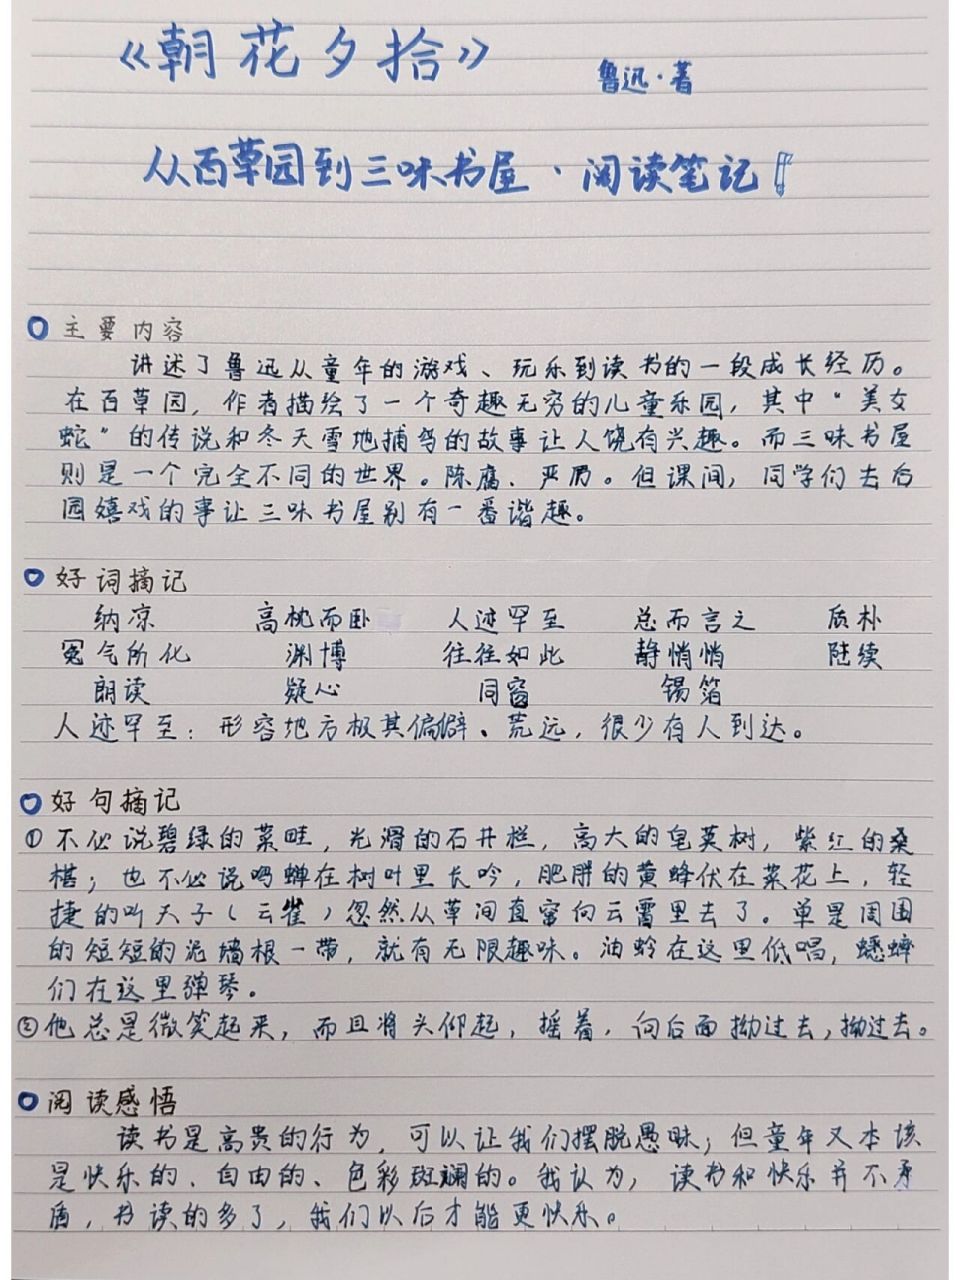 《朝花夕拾》
鲁迅·著
从百草园到三味书屋·阅读笔记
主要内容
讲述了鲁迅从童年的游戏、玩乐到读书的一段成长经历。
在百草园，作者描绘了一个奇趣无穷的儿童乐园，其中“美女
蛇”的传说和冬天雪地捕鸟的故事让人饶有兴趣。而三味书屋
则是一个完全不同的世界。陈腐、严厉。但课间，同学们去后
园嬉戏的事让三味书屋别有一番谐趣。
好词摘记
纳凉 高枕而卧 人迹罕至 总而言之 质朴
冤气所化 渊博 往往如此 静悄悄 陆续
朗读 疑心 同窗 锡箔
人迹罕至：形容地方极其偏僻、荒远，很少有人到达。
好句摘记
①不必说碧绿的菜畦，光滑的石井栏，高大的皂荚树，紫红的桑
椹；也不必说鸣蝉在树叶里长吟，肥胖的黄蜂伏在菜花上，轻
捷的叫天子（云雀）忽然从草间直窜向云霄里去了。单是周围
的短短的泥墙根一带，就有无限趣味。油蛉在这里低唱，蟋蟀
们在这里弹琴。
②他总是微笑起来，而且将头仰起，摇着，向后面拗过去，拗过去。
阅读感悟
读书是高贵的行为，可以让我们摆脱愚昧；但童年又本该
是快乐的、自由的、色彩斑斓的。我认为，读书和快乐并不矛
盾，书读的多了，我们以后才能更快乐。